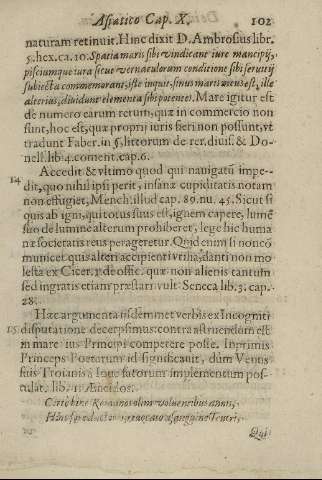 Asiatico Cap. X. 102
naturam retinuit. Hinc dixit D. Ambrosius libr.
5. hex. ca. 10. Spatia maris sibi vindicant iure mancipij,
pisciumque iura sicut vernaculorum conditione sibi seruitij
subiecta commemorant, iste inquit, sinus maris meus est, ille
alterius, diuidunt elementa sibi potentes. Mare igitur est
de numero earum rerum, quæ in commercio non
sunt, hoc est, quæ proprij iuris fieri non possunt, vt
tradunt Faber. in §. littorum de rer. diuis. & Do-
nell. lib 4. coment. cap. 6.
14 Accedit & vltimo quod qui nauigatū impe-
dit, quo nihil ipsi perit, insanæ cupiditatis notam
non effugiet, Mench. illud cap. 89. nu. 45. Sicut si
quis ab igni, qui totus suus est, ignem capere, lumē
suo de lumine alterum prohiberet, lege hic huma
næ societatis reus perageretur. Quid enim si non cō
municet quis alteri accipienti vtilia, danti non mo
lesta ex Cicer. 1. de offic. quæ non alienis tantum
sed ingratis etiam præstari vult Seneca lib. 3. cap.
28.
Hæc argumenta iisdemmet verbis ex Incogniti
15 disputatione decerpsimus: contra astruendum est
in mare ius Principi competere posse. Inprimis
Princeps Poetarum id significauit, dùm Venus
suis Troianis à Ioue suorum implementum pos-
tulat. lib. 1. Æneidos.
Certe hinc Romanos olim voluentibus annis,
Hinc fore ductores, reuocato a sanguine Teucri,
Qui